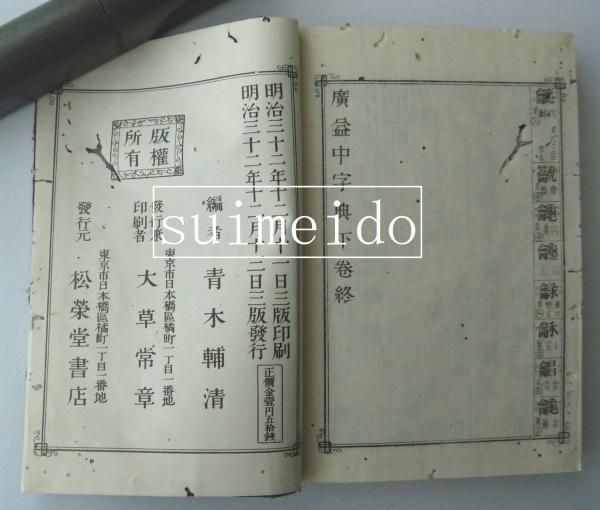 廣益中字典下卷終
明治三十二年十二月十一日三版印刷
明治三十二年十二月十二日三版發行
正價金壹円五拾錢
版權
所有
編者 青木輔清
東京市日本橋區橘町一丁目一番地
發行兼
印刷者 大草常章
東京市日本橋區橘町一丁目一番地
發行元 松榮堂書店
suimeido